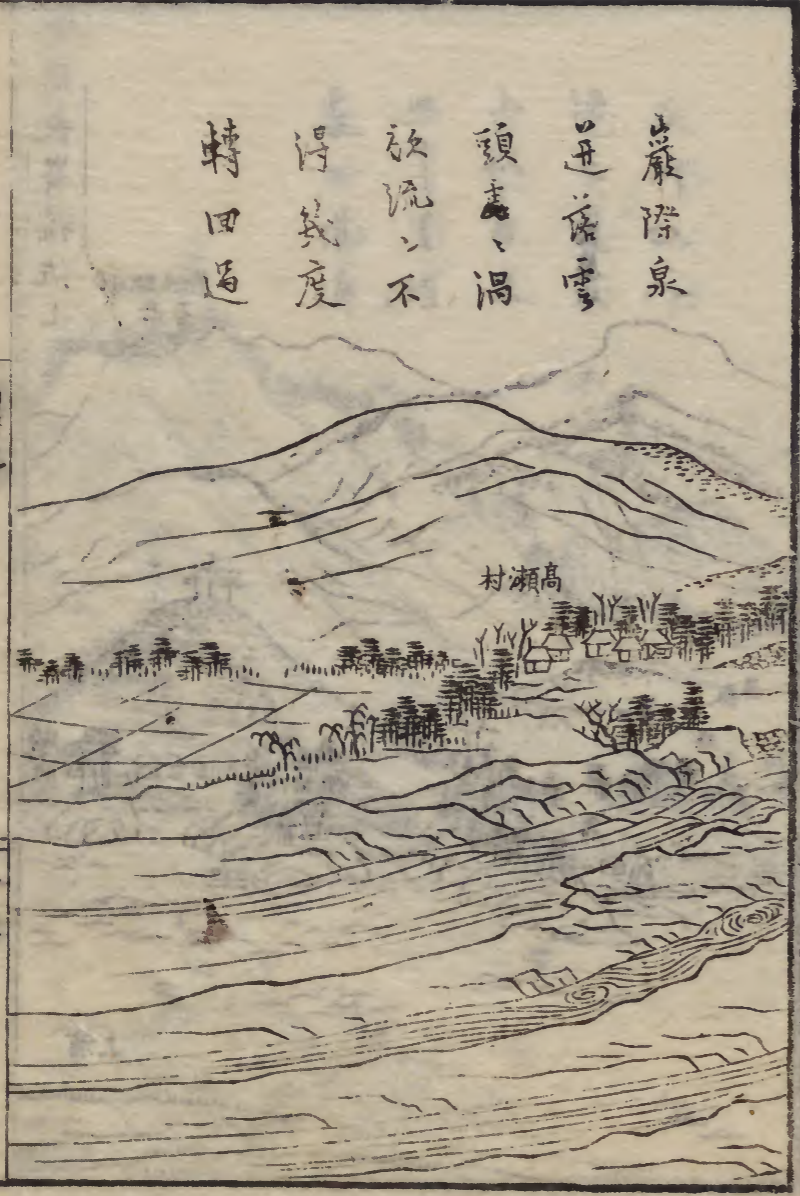 巖際泉
迸落雲
頭處〻渦
欲流〻不
得幾度
轉回過
高瀬村